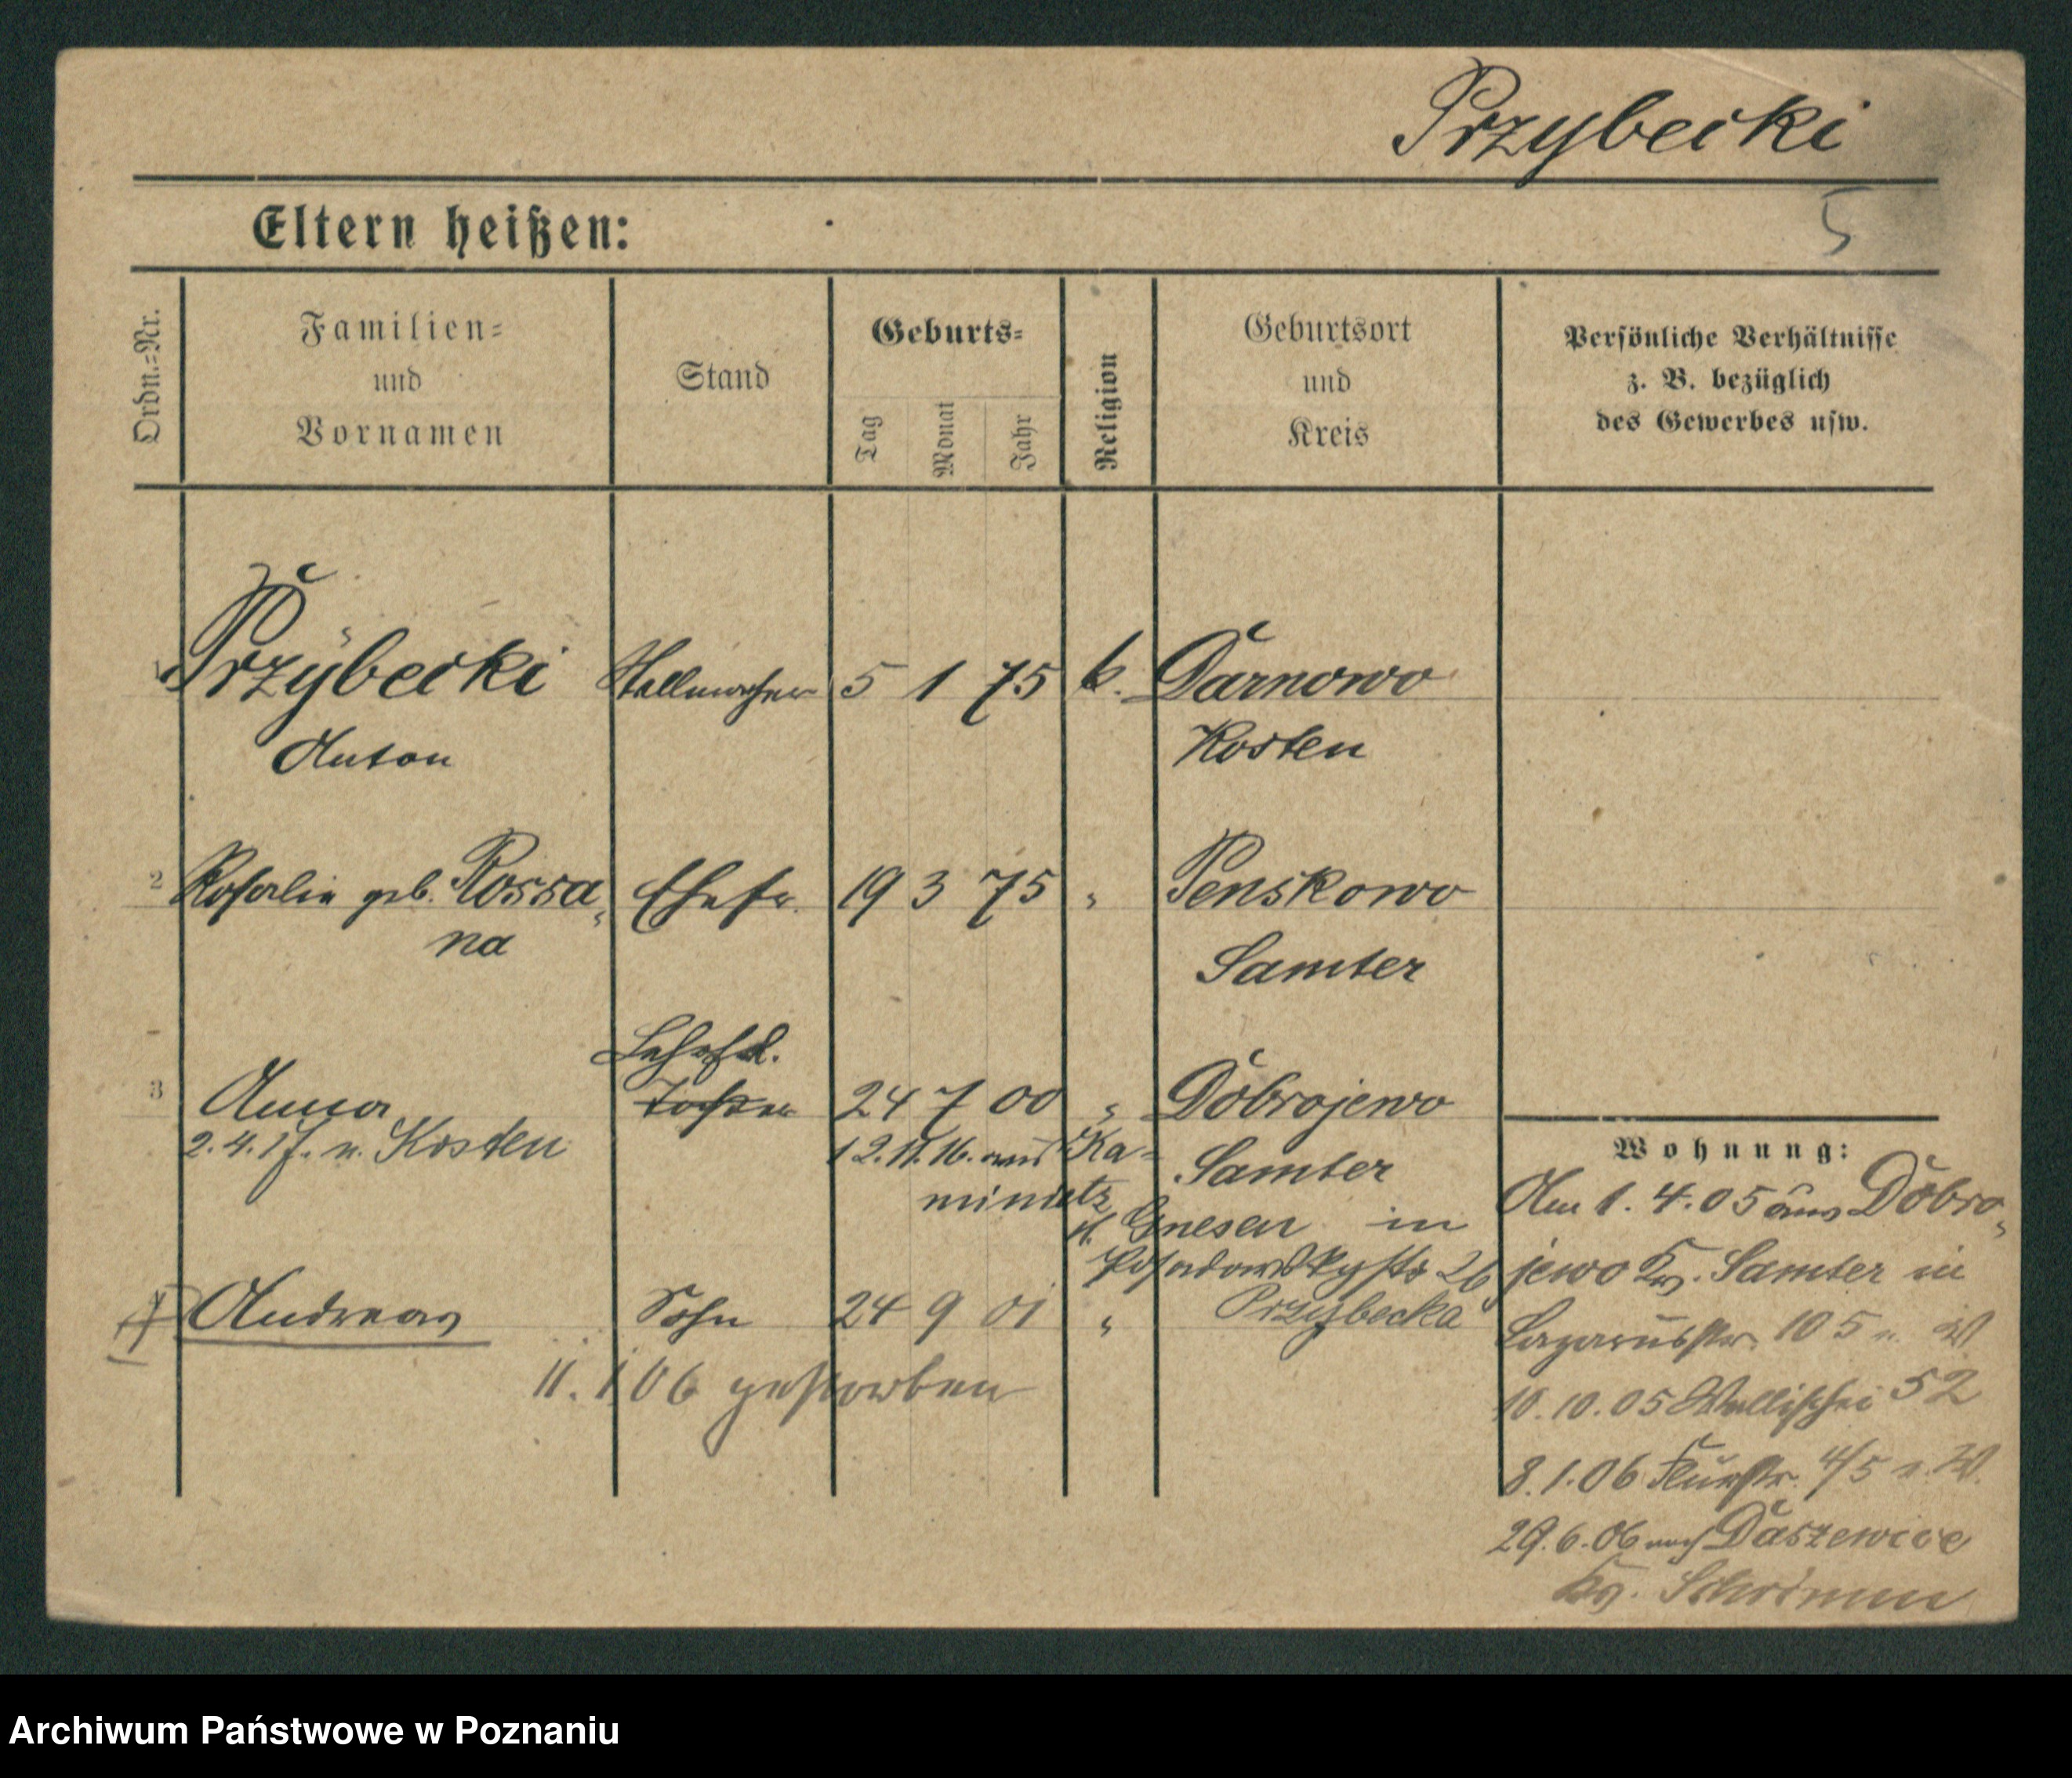 Przybecki
5
Eltern heißen:
Ordn.-Nr.
Familien-
und
Vornamen
Stand
Geburts-
Tag
Monat
Jahr
Religion
Geburtsort
und
Kreis
Persönliche Verhältnisse
z. B. bezüglich
des Gewerbes usw.
Przybecki Stellmacher 5 1 75 k. Darnowo
Anton Kosten
2 Rosalie geb. Rossa-
na
Ehefr. 19 3 75 " Penskowo
Samter
3 Anna
Tochter 24 7 00 " Dobrojewo
Samter
2.4.17. n. Kosten
12.11.16. aus Ka-
minietz
Gnesen in
26
Przybecka
Andreas Sohn 24 9 01 "
11.1.06 gestorben
Wohnung:
Am 1.4.05 aus Dobro-
jewo Kr. Samter in
Lazarusstr. 10 5
10.10.05 Wallischei 52
8.1.06 Flurstr. 4/5 b. W.
29.6.06 nach Daszewice
Kr. Schrimm
Archiwum Państwowe w Poznaniu